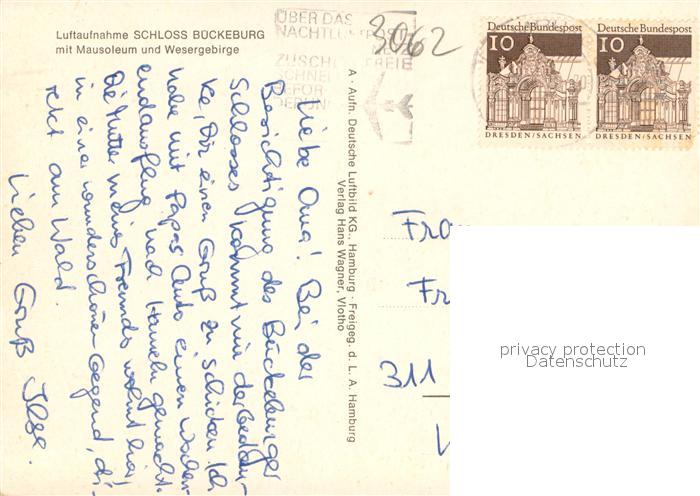 Luftaufnahme SCHLOSS BÜCKEBURG
mit Mausoleum und Wesergebirge
ÜBER DAS
NACHTLUFTPOSTNETZ
ZUSCHLAGFREIE
SCHNELLE
BEFÖR-
DERUNG
3062
Deutsche Bundespost
10
DRESDEN/SACHSEN
Deutsche Bundespost
10
DRESDEN/SACHSEN
A · Aufn. Deutsche Luftbild KG., Hamburg · Freigeg. d. L. A. Hamburg
Verlag Hans Wagner, Vlotho
Liebe Oma! Bei der
Besichtigung des Bückeburger
Schlosses kommt mir der Gedan-
ke, Dir einen Gruß zu schicken. Ich
habe mit Papas Auto einen Wochen-
endausflug nach Hameln gemacht.
Die Mutter meines Freunds wohnt hier
in einer wunderschönen Gegend, di-
rekt am Wald.
Lieben Gruß Ilse.
Frau
Fr
311
privacy protection
Datenschutz